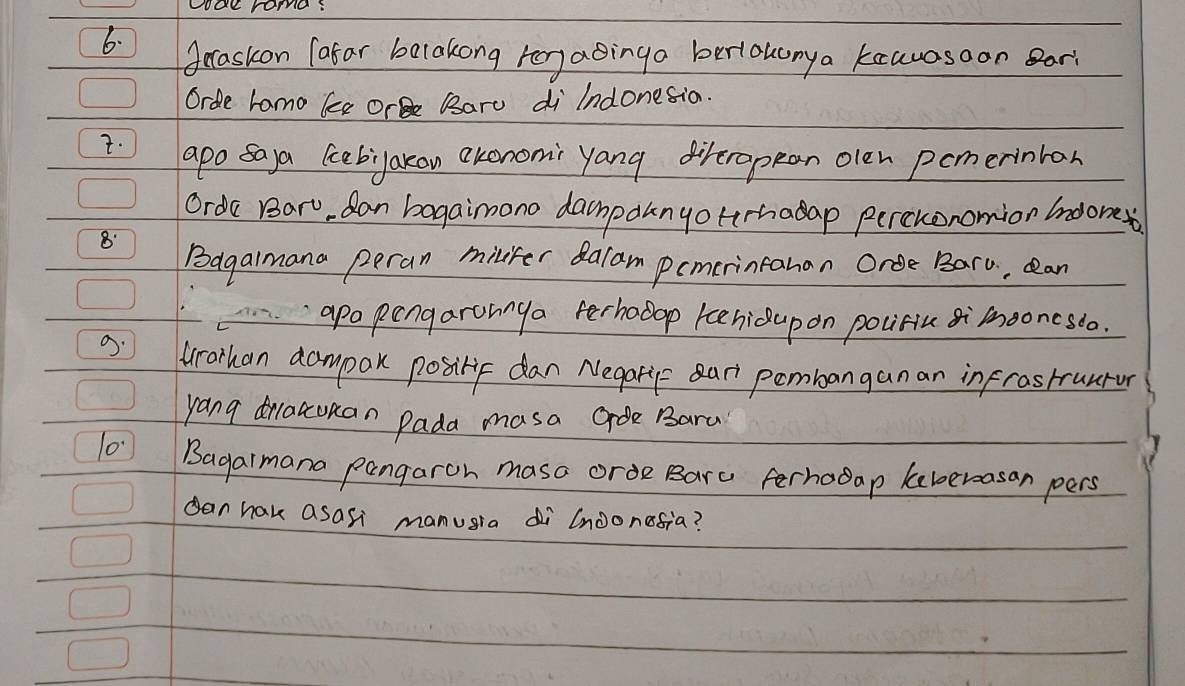 6. Jelaskan latar belakang terjadinya berlakunya kekuasaan dari
Orde Lama ke Orde Baru di Indonesia.
7. apa saja kebijakan ekonomi yang diterapkan oleh pemerintah
Orde Baru, dan bagaimana dampaknya terhadap perekonomian Indonesia.
8. Bagaimana peran militer dalam pemerintahan Orde Baru, dan
apa pengaruhnya terhadap kehidupan politik di Indonesia.
9. Uraikan dampak positif dan Negatif dari pembangunan infrastruktur
yang dilakukan pada masa Orde Baru
10. Bagaimana pengaruh masa orde Baru terhadap kebebasan pers
dan hak asasi manusia di Indonesia?